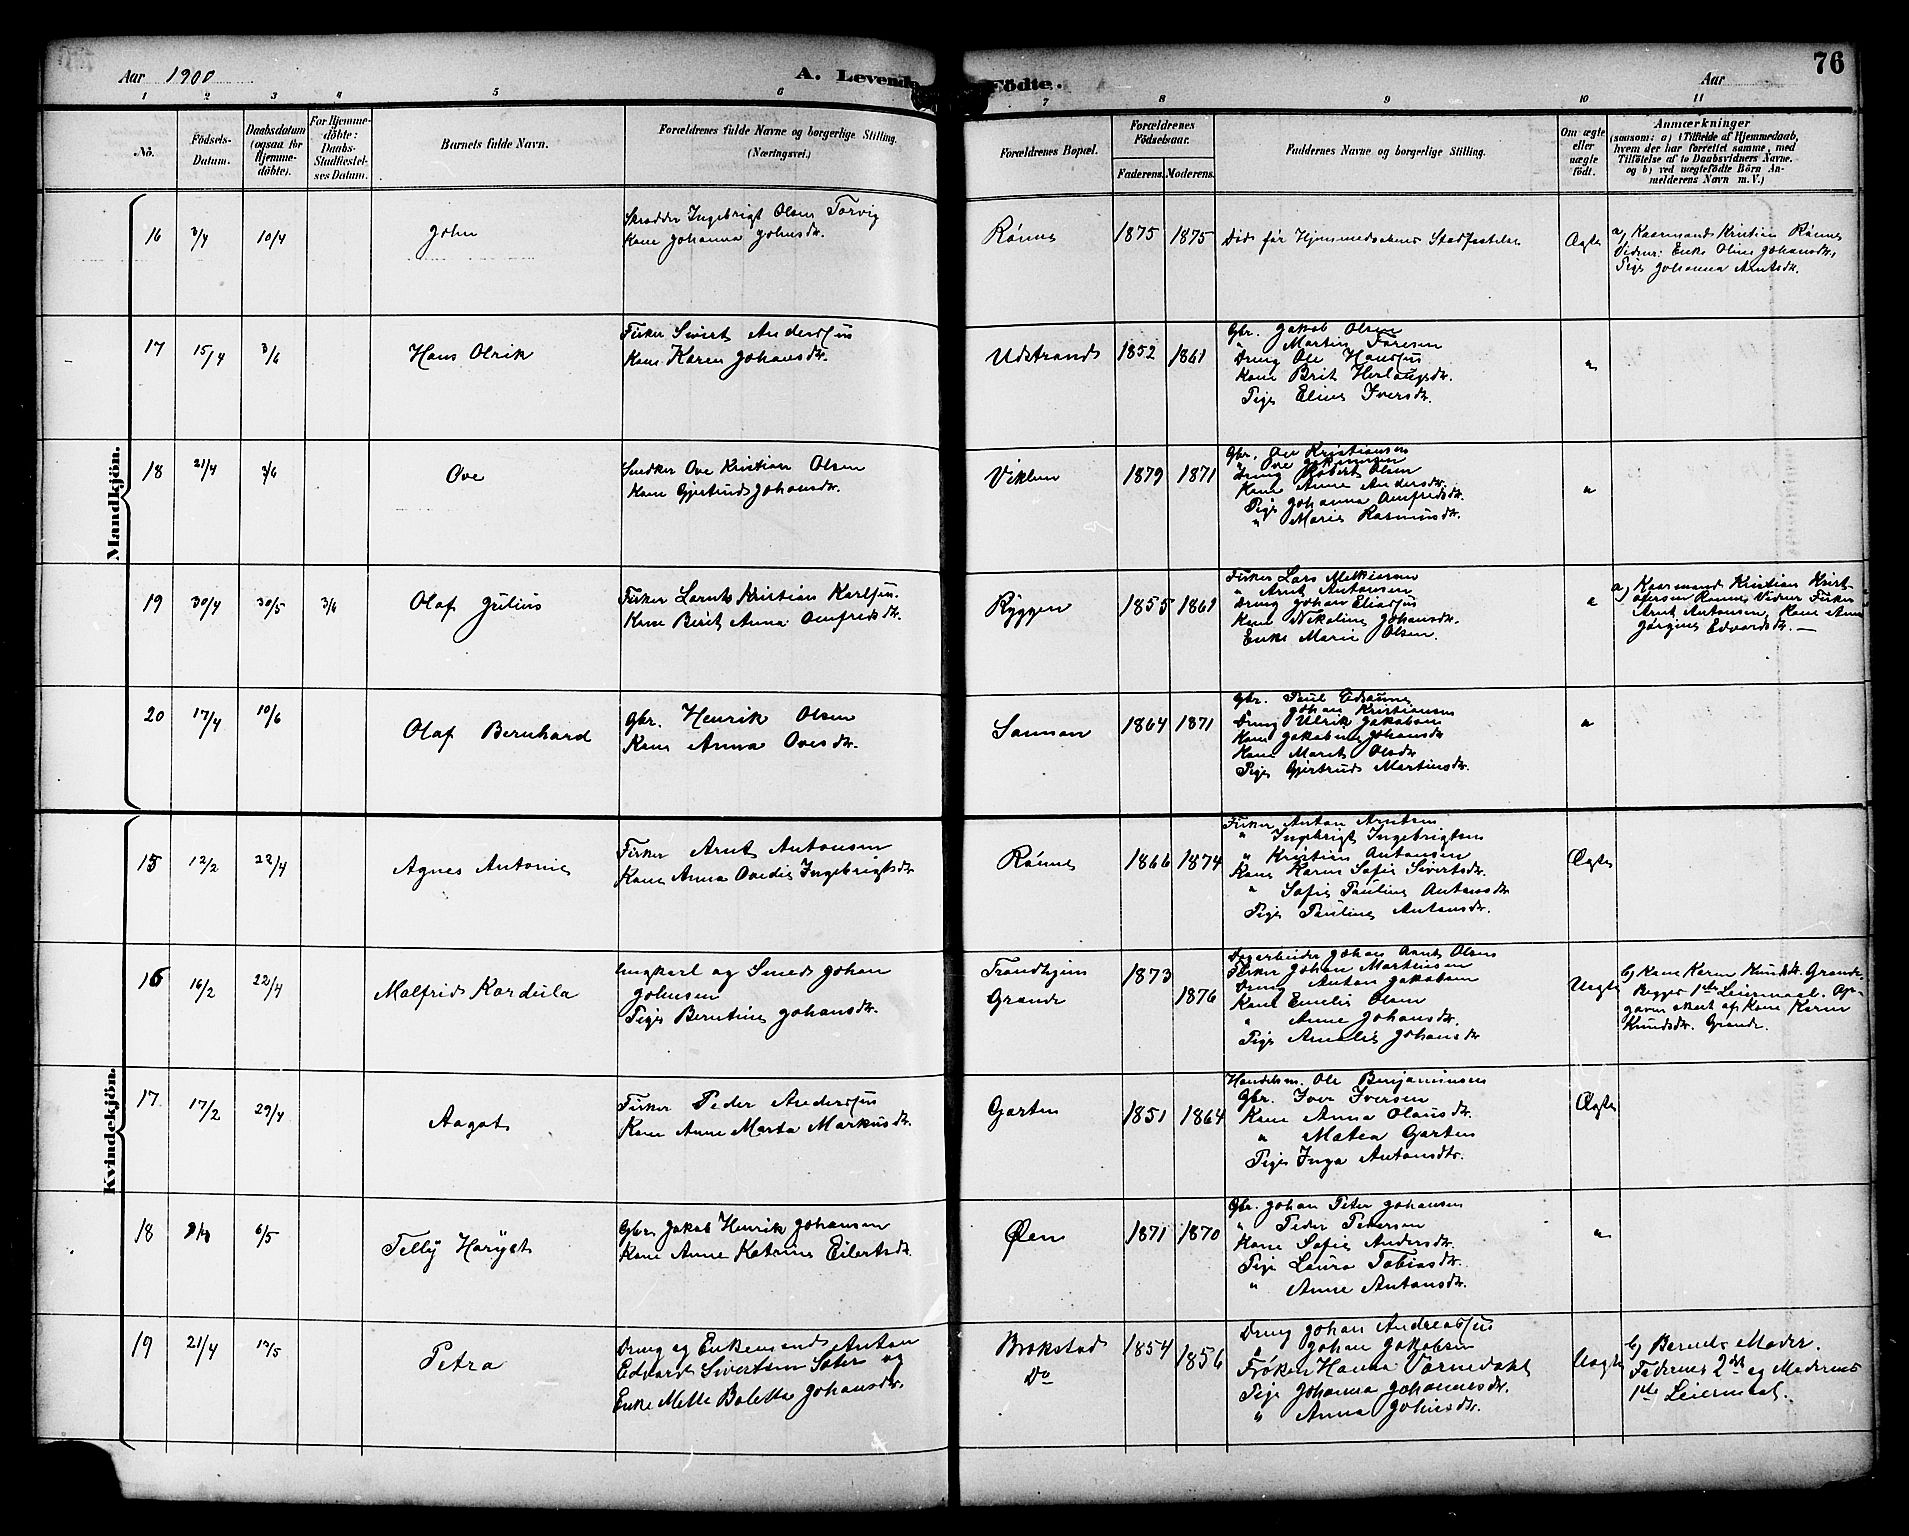 76
Aar 1900
A. Levende Födte.
Aar
1 2 3 4 5 6 7 8 9 10 11
No.
Födsels-Datum.
Daabsdatum (ogsaa for Hjemme-döbte).
For Hjemme-döbte: Daabs-Stadfæstel-ses Datum.
Barnets fulde Navn.
Forældrenes fulde Navne og borgerlige Stilling. (Næringsvei.)
Forældrenes Bopæl.
Forældrenes Födselsaar.
Faderens. Moderens.
Faddernes Navne og borgerlige Stilling.
Om ægte eller uægte födt.
Anmærkninger
(saasom: a) i Tilfælde af Hjemmedaab,
hvem der har forrettet samme, med
Tilföielse af to Daabsvidners Navne.
og b) ved uægtefödte Börn An-
melderens Navn m. V.)
Mandkjön.
16 3/4 10/4
John
Skrædder Ingebrigt Olsen Torvig
Kone Johanna Johnsdtr.
Rönne
1875 1875
Död før Hjemmedaabens Stadfæstelse
Ægte
a) Kaarmand Kristian Rönne
Vidner: Enke Oline Johansdtr,
Pige Johanna Arntsdtr.
17 15/4 3/6
Hans Olrik
Fisker Sivert Anderssen
Kone Karen Johansdtr.
Udstrand
1852 1861
Gbr. Jakob Olsen
" Martin Foresen
Dreng Ole Hanssen
Kone Brit Herlaugsdtr.
Pige Eline Iversdtr.
"
18 21/4 3/6
Ove
Snedker Ove Kristian Olsen
Kone Gjertrud Johansdtr.
Viklem
1879 1871
Gbr. Ole Kristiansen
" Ove
Dreng Robert Olsen
Kone Anne Andersdtr.
Pige Johanna Amfredsdtr.
" Marie Rasmusdtr.
"
19 30/4 30/5 3/6
Olaf Julius
Fisker Lornts Kristian Karlsen.
Kone Berit Anna Amfredsdtr.
Ryggen
1855 1861
Fisker Lars Melkiorsen
" Arnt Antonsen
Dreng Johan Eliassen
Kone Nikoline Johansdtr.
Enke Marie Olsen
"
a) Kaarmand Kristian Krist-
ofersen Rönne, Vidner Fisker
Arnt Antonsen, Kone Anna
Jørgine Edvardsdtr. —
20 17/4 10/6
Olaf Bernhard
Gbr. Henrik Olsen
Kone Anna Ovesdtr.
1864 1871
Gbr. Paul Eidsaune
Johan Kristiansen
Dreng Ulrik Jakobsen
Kone Jakobine Johansdtr
Kone Marit Olsdtr
Pige Gjertrud Martinsdtr.
"
Kvindekjön.
15 12/2 22/4
Agnes Antonie
Fisker Arnt Antonsen
Kone Anna Ovedie Ingebrigtsdtr
Rönne
1866 1874
Fisker Anton Arntsen
" Ingebrigt Ingebrigtsen
" Kristian Antonsen
Kone Karen Sofie Sivertsdtr.
" Sofie Pauline Antonsdtr
Pige Pauline Antonsdtr.
Ægte
16 16/2 22/4
Malfrid Kordula
Ungkarl og Smed Johan
Johnsen
Pige Berntine Johansdtr.
Trondhjem
Grande
1873
1876
Dagarbeider Johan Arnt Olsen
Fisker Johan Martinsen
Dreng Anton Jakobsen
Kone Emelie Olsen
" Anne Johansdtr.
Pige Amalie Johansdtr
Uægte
b) Kone Karen Knudsdtr. Grande.
Begges 1ste Leiermaal. Op-
gaven skeet af Kone Karen
Knudsdtr. Grande.
17. 17/2 29/4
Aagot
Fisker Peder Anderssen
Kone Anne Marta Markusdtr.
Garten
1851 1864
Handelsm. Ole Benjaminsen
Gbr. Iver Iversen
Kone Anna Olausdtr.
" Matea Garten
Pige Inga Antonsdtr.
Ægte
18 6/5
Telly Haryet
Gbr. Jakob Henrik Johansen
Kone Anne Katrine Eilertsdtr.
Øen
1871 1870
Gbr. Johan Peter Johansen
" Peder Pedersen
Kone Sofie Andersdtr.
Pige Laura Tobiasdtr.
" Anne Antonsdtr.
"
19 21/4 17/5
Petra
Dreng og Enkemand Anton
Edvard Sivertsen Sæter og
Enke Mette Boletta Johansdtr.
Brækstad
Do
1854
1856
Dreng Johan Andreassen
" Johan Jakobsen
Frøken Hanna Varnedahl
Pige Johanna Johannesdtr.
" Anna Johnsdtr.
Uægte
b) Barnets Moder.
Faderens 2det og Moderens
1ste Leiermaal.